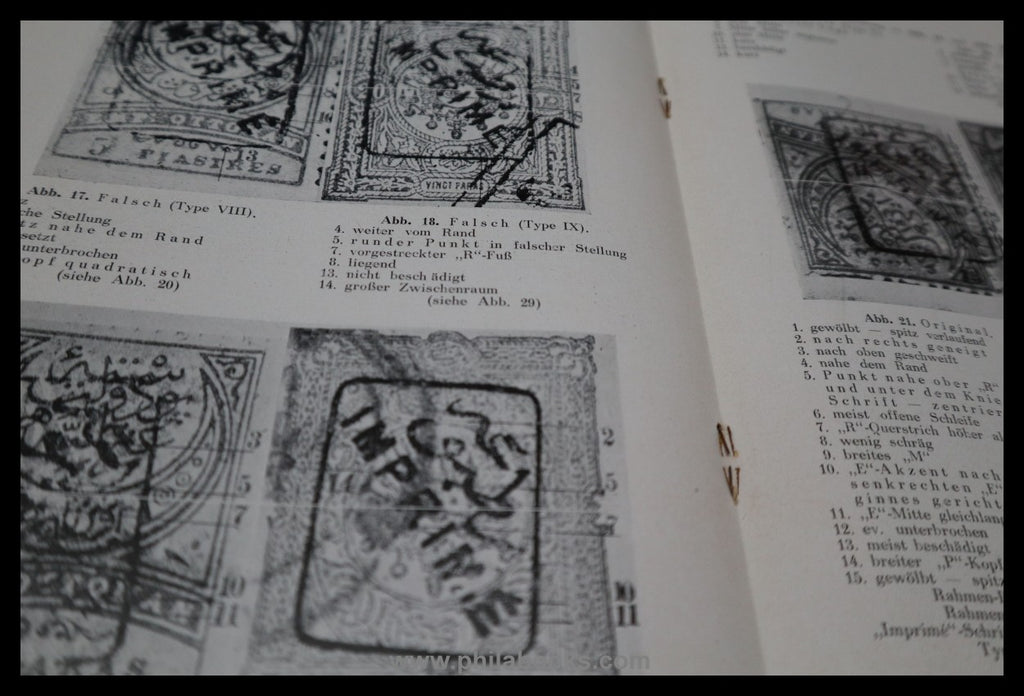 IMPRIMÉ
IMPRIMÉ
OTTOM
PIASTRES
13
VINGT PARAS
Abb. 17. Falsch (Type VIII).
che Stellung
tz nahe dem Rand
setzt
unterbrochen
opf quadratisch
(siehe Abb. 20)
Abb. 18. Falsch (Type IX).
4. weiter vom Rand
5. runder Punkt in falscher Stellung
7. vorgestreckter „R“-Fuß
8. liegend
13. nicht beschädigt
14. großer Zwischenraum
(siehe Abb. 29)
3
5
7
10
11
IMPRIMÉ
14
2
5
7
10
11
Abb. 21. Original.
1. gewölbt — spitz verlaufend
2. nach rechts geneigt
3. nach oben geschweift
4. nahe dem Rand
5. Punkt nahe ober „R“
und unter dem Knie
Schrift — zentrier
6. meist offene Schleife
7. „R“-Querstrich höher al
8. wenig schräg
9. breites „M“
10. „E“-Akzent nach
senkrechten „E“
ginnes gericht
11. „E“-Mitte gleichlan
12. ev. unterbrochen
13. meist beschädigt
14. breiter „P“-Kopf
15. gewölbt — spitz
Rahmen-
Rahmen
„Imprimé“-Schri
Ty
www.philabooks.com